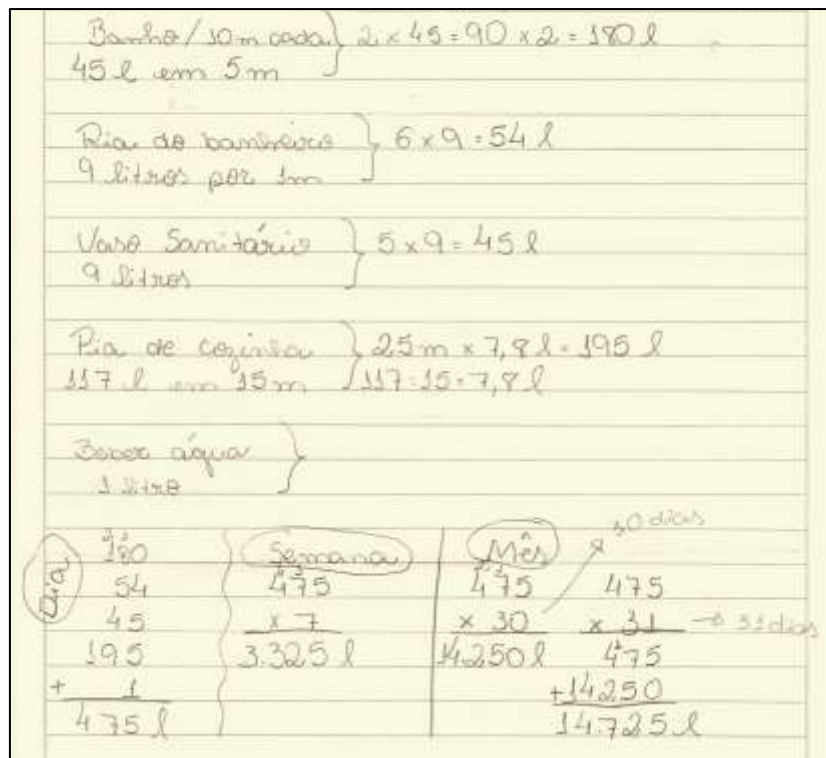 Banho/10m cada } 2 x 45 = 90 x 2 = 180 l
45 l em 5m
Pia do banheiro } 6 x 9 = 54 l
9 litros por 1m
Vaso Sanitário } 5 x 9 = 45 l
9 litros
Pia de cozinha } 25m x 7,8 l = 195 l
117 l em 15m } 117:15=7,8 l
Beber água }
1 litro
Dia
180
54
45
195
+ 1
475 l
Semana
475
x 7
3.325 l
Mês
30 dias
475
x 30
14250 l
475
x 31 → 31 dias
475
+14250
14.725 l